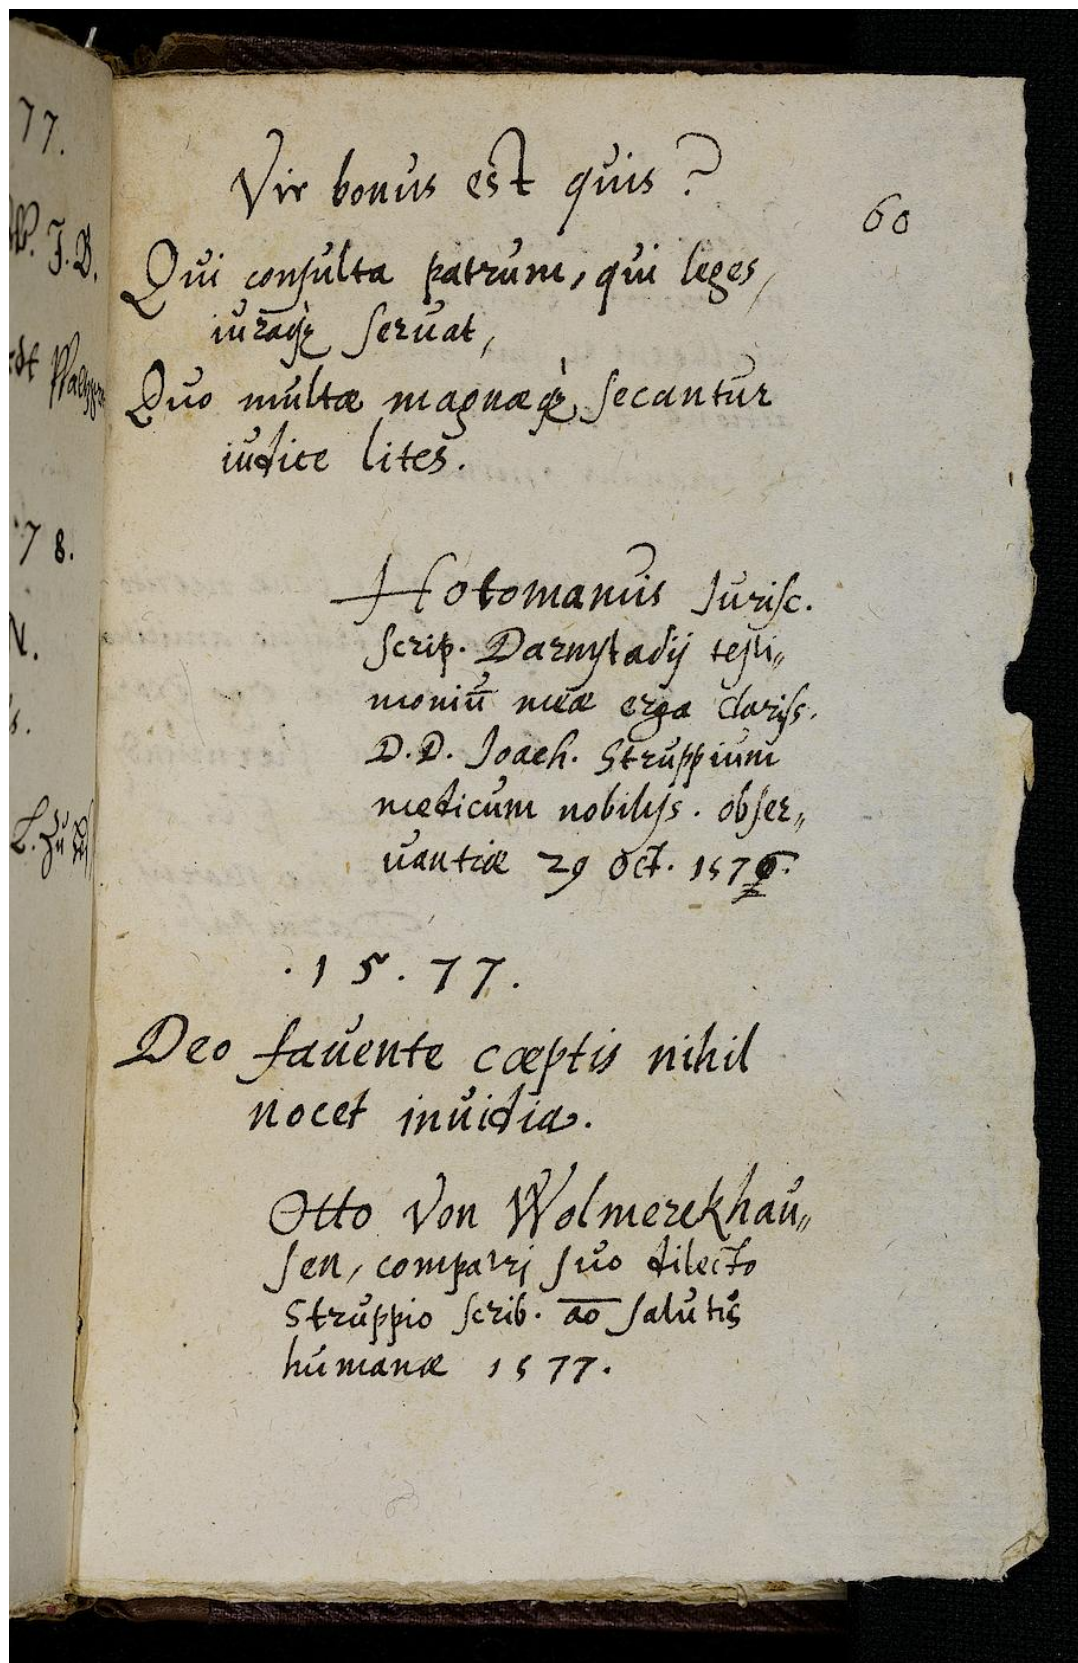 Vir bonus est quis?
60
Qui consulta patrum, qui leges,
iuraq́ꝫ seruat,
Quo multæ magnæq́ꝫ secantur
iudice lites.
Hotomanus Jurisc.
scrip. Darmstadij testi„
moniū meæ erga clariss.
D.D. Joach. Struppium
medicum nobiliss. obser„
uantiæ 29 Oct. 157
.15.77.
Deo favente cœptis nihil
nocet inuidia.
Otto von Wolmerckhau„
sen, compatri suo dilecto
Struppio scrib. ao salutis
humanæ 1577.
77.
J.D.
78.
N.